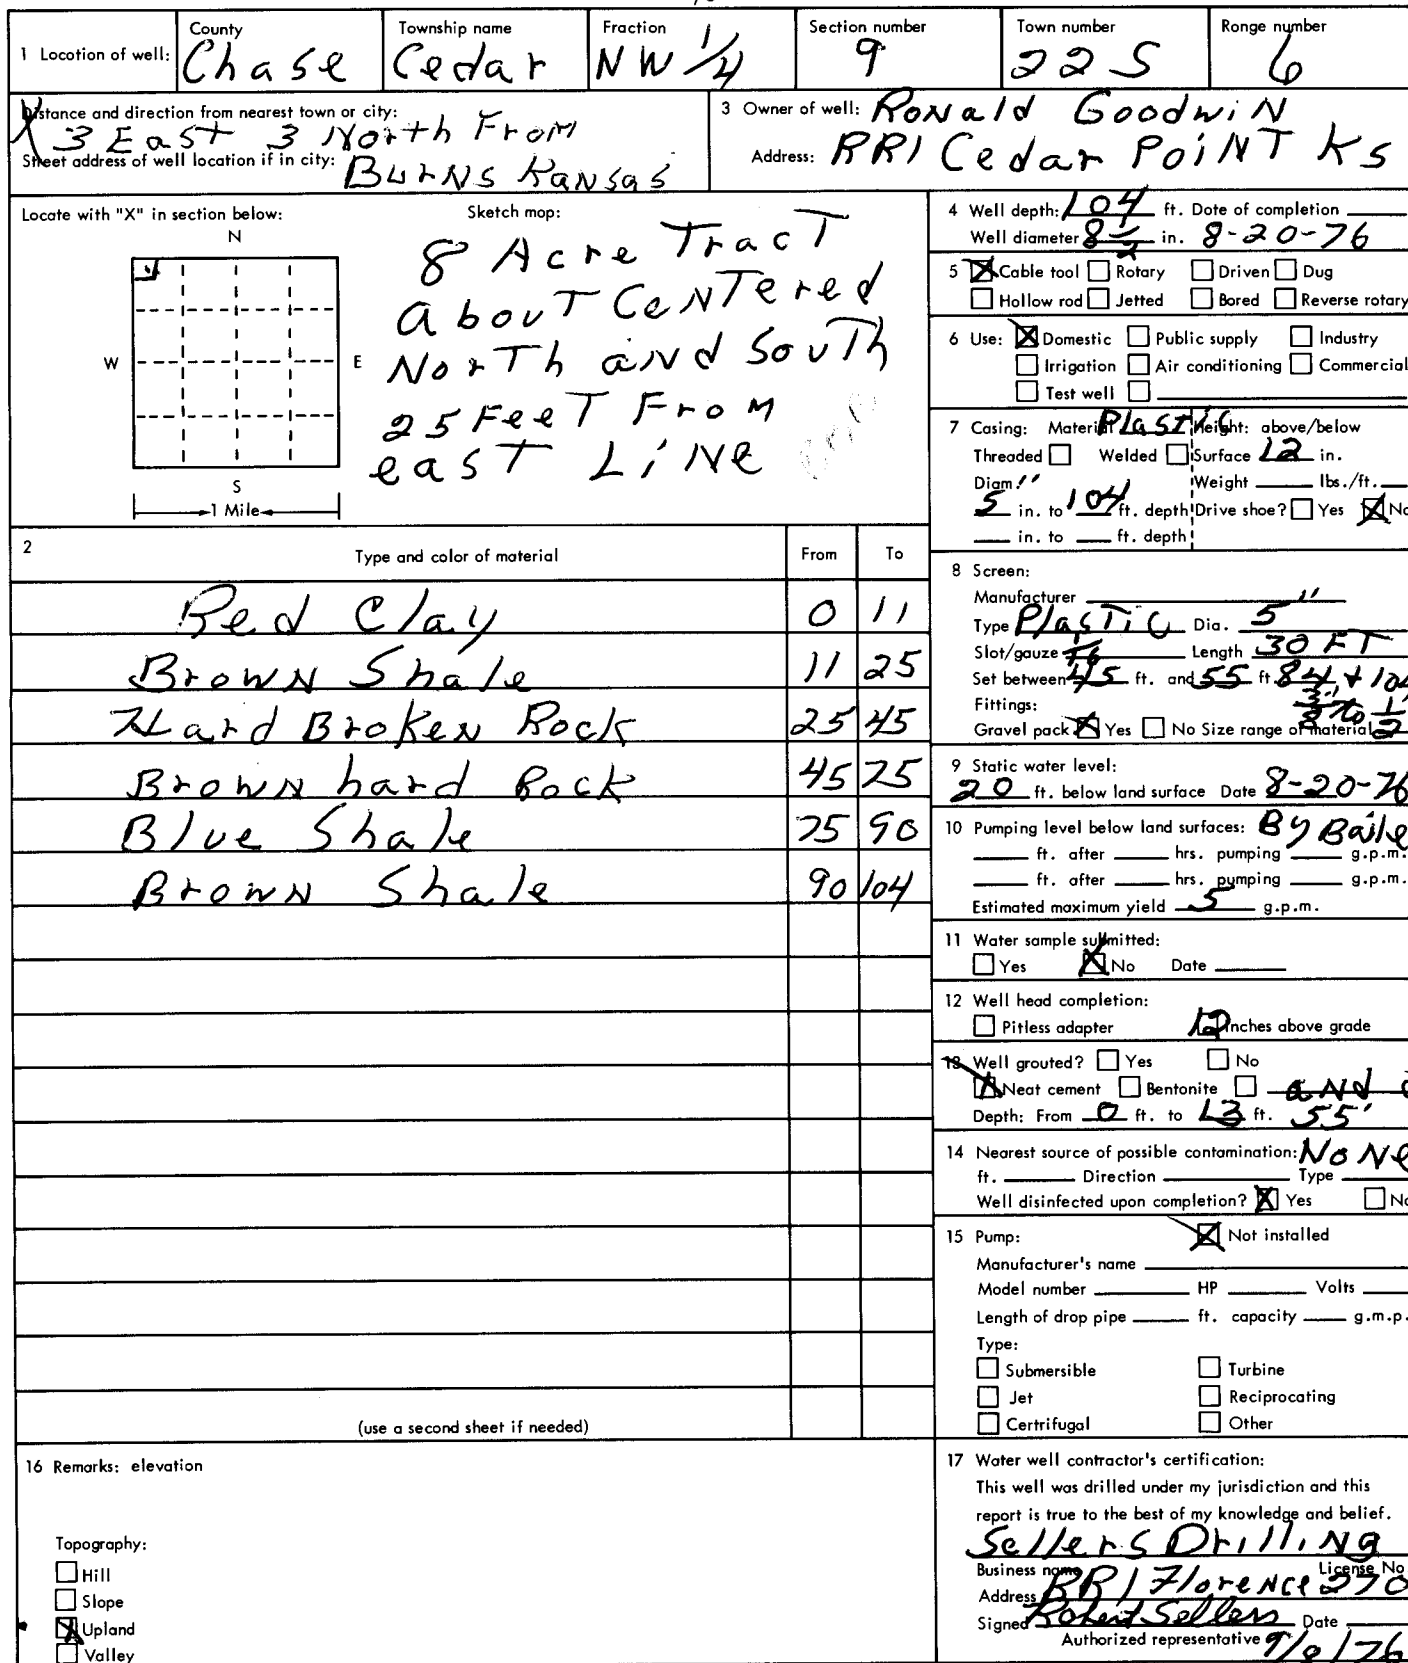 County Township name Fraction Section number Town number Range number
1 Location of well: Chase Cedar NW 1/4 9 22 S 6
Distance and direction from nearest town or city:
3 East 3 North From
Street address of well location if in city:
Burns Kansas
3 Owner of well: Ronald Goodwin
Address: RR1 Cedar Point Ks
Locate with "X" in section below:
N
W E
S
1 Mile
Sketch map:
8 Acre Tract
About Centered
North and South
25 Feet From
east Line
4 Well depth: 104 ft. Date of completion
Well diameter 8 1/2 in. 8-20-76
5 Cable tool Rotary Driven Dug
Hollow rod Jetted Bored Reverse rotary
6 Use: Domestic Public supply Industry
Irrigation Air conditioning Commercial
Test well
7 Casing: Material Plastic Height: above/below
Threaded Welded Surface 12 in.
Diam. Weight lbs./ft.
5 in. to 104 ft. depth Drive shoe? Yes No
in. to ft. depth
2 Type and color of material From To
Red Clay 0 11
Brown Shale 11 25
Hard Broken Rock 25 45
Brown hard Rock 45 75
Blue Shale 75 90
Brown Shale 90 104
(use a second sheet if needed)
8 Screen:
Manufacturer
Type Plastic Dia. 5"
Slot/gauze Length 30 FT
Set between 45 ft. and 55 ft. 84 + 104
Fittings:
Gravel pack Yes No Size range of material 3/8" to 1/2"
9 Static water level:
20 ft. below land surface Date 8-20-76
10 Pumping level below land surfaces: By Baile
ft. after hrs. pumping g.p.m.
ft. after hrs. pumping g.p.m.
Estimated maximum yield 5 g.p.m.
11 Water sample submitted:
Yes No Date
12 Well head completion:
Pitless adapter 12 Inches above grade
13 Well grouted? Yes No
Neat cement Bentonite and
Depth: From 0 ft. to 13 ft. 55'
14 Nearest source of possible contamination: None
ft. Direction Type
Well disinfected upon completion? Yes No
15 Pump: Not installed
Manufacturer's name
Model number HP Volts
Length of drop pipe ft. capacity g.m.p.
Type:
Submersible Turbine
Jet Reciprocating
Certrifugal Other
16 Remarks: elevation
Topography:
Hill
Slope
Upland
Valley
17 Water well contractor's certification:
This well was drilled under my jurisdiction and this
report is true to the best of my knowledge and belief.
Sellers Drilling
Business name License No
Address RR1 Florence 270
Signed Robert Sellers Date
Authorized representative 9/8/76